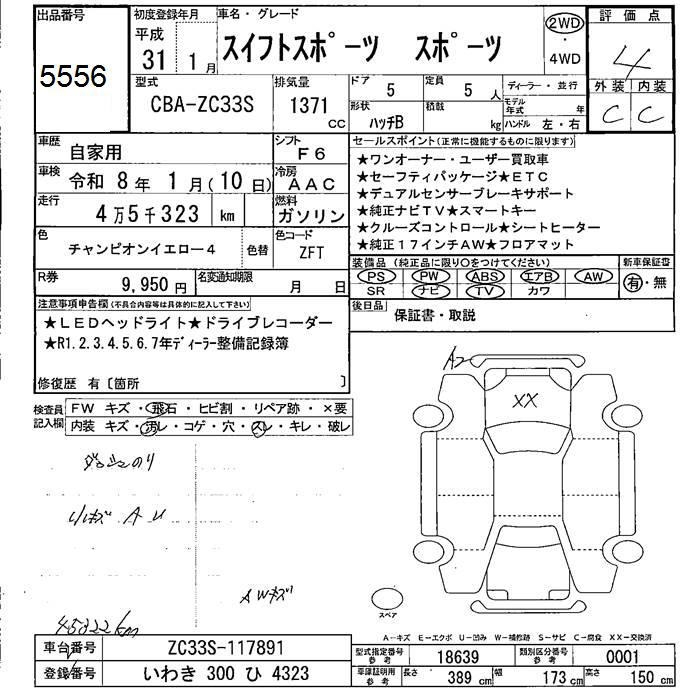 出品番号
5556
初度登録年月
平成
31 1月
車名・グレード
スイフトスポーツ スポーツ
2WD
・
4WD
評価点
4
外装 内装
C C
型式
CBA-ZC33S
排気量
1371
CC
ドア 5
定員 5 人
形状 ハッチB
積載 kg
ディーラー・並行
モデル年式 年
ハンドル 左・右
車歴
自家用
シフト
F6
車検
令和 8年 1月(10日)
冷房
AAC
走行
4万5千323 km
燃料
ガソリン
色
チャンピオンイエロー4
色替
色コード
ZFT
R券
9,950円
名変通知期限
月 日
セールスポイント(正常に機能するものに限ります)
★ワンオーナー・ユーザー買取車
★セーフティパッケージ★ETC
★デュアルセンサーブレーキサポート
★純正ナビTV★スマートキー
★クルーズコントロール★シートヒーター
★純正17インチAW★フロアマット
装備品(純正品に限り○をつけてください)
PS PW ABS エアB AW
SR ナビ TV カワ
新車保証書
有・無
後日品
保証書・取説
注意事項申告欄(不具合内容等は具体的に記入して下さい)
★LEDヘッドライト★ドライブレコーダー
★R1.2.3.4.5.6.7年ディーラー整備記録簿
修復歴 有〔箇所 〕
検査員記入欄
FW キズ・飛石・ヒビ割・リペア跡・×要
内装 キズ・汚レ・コゲ・穴・スレ・キレ・破レ
A2
XX
AWキズ
45322km
スペア
A-キズ E-エクボ U-凹み W-補修跡 S-サビ C-腐食 XX-交換済
車台番号
ZC33S-117891
登録番号
いわき 300 ひ 4323
型式指定番号
参考
18639
類別区分番号
参考
0001
車庫証明用
参考
長さ 389 cm
幅 173 cm
高さ 150 cm